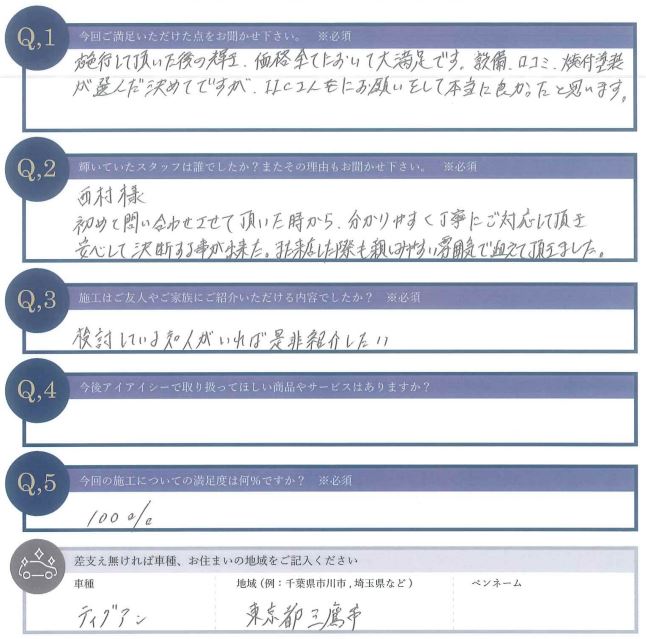 Q,1 今回ご満足いただけた点をお聞かせ下さい。 ※必須
施行して頂いた後の輝き、価格全てにおいて大満足です。設備、口コミ、焼付塗装
が選んだ決めてですが、IICさんをにお願いをして本当に良かったと思います。
Q,2 輝いていたスタッフは誰でしたか？またその理由もお聞かせ下さい。 ※必須
西村様
初めて問い合わせさせて頂いた時から、分かりやすく丁寧にご対応して頂き
安心して決断する事が出来た。また来店した際も親しみやすい雰囲気で迎えて頂きました。
Q,3 施工はご友人やご家族にご紹介いただける内容でしたか？ ※必須
検討している知人がいれば是非紹介したい
Q,4 今後アイアイシーで取り扱ってほしい商品やサービスはありますか？
Q,5 今回の施工についての満足度は何％ですか？ ※必須
100%
差支え無ければ車種、お住まいの地域をご記入ください
車種 地域 (例：千葉県市川市 , 埼玉県など ) ペンネーム
ティグアン 東京都三鷹市